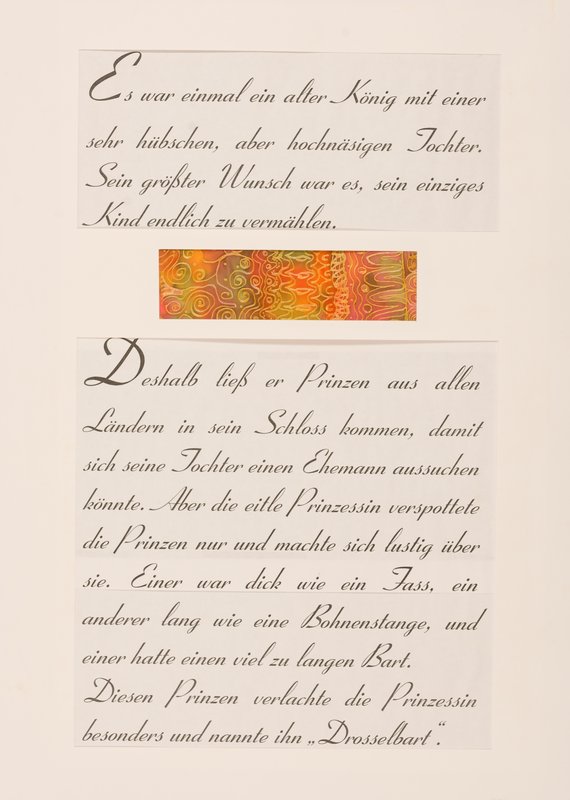 Es war einmal ein alter König mit einer
sehr hübschen, aber hochnäsigen Tochter.
Sein größter Wunsch war es, sein einziges
Kind endlich zu vermählen.
Deshalb ließ er Prinzen aus allen
Ländern in sein Schloss kommen, damit
sich seine Tochter einen Ehemann aussuchen
könnte. Aber die eitle Prinzessin verspottete
die Prinzen nur und machte sich lustig über
sie. Einer war dick wie ein Fass, ein
anderer lang wie eine Bohnenstange, und
einer hatte einen viel zu langen Bart.
Diesen Prinzen verlachte die Prinzessin
besonders und nannte ihn „Drosselbart“.